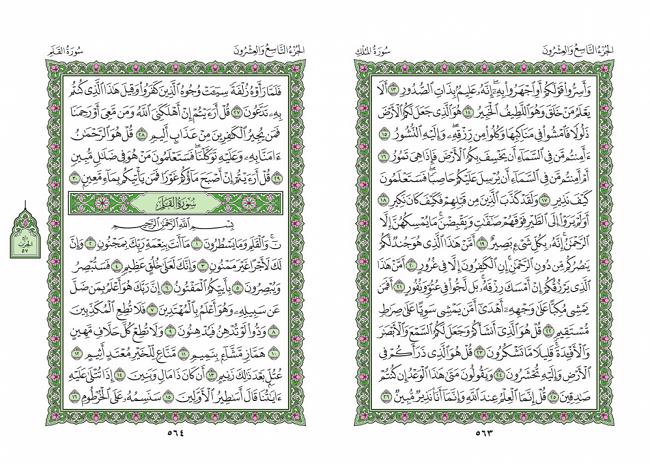 سورة الملك
الجزء التاسع والعشرون
وَأَسِرُّوا۟ قَوْلَكُمْ أَوِ ٱجْهَرُوا۟ بِهِۦٓ إِنَّهُۥ عَلِيمٌۢ بِذَاتِ ٱلصُّدُورِ ١٣ أَلَا
يَعْلَمُ مَنْ خَلَقَ وَهُوَ ٱللَّطِيفُ ٱلْخَبِيرُ ١٤ هُوَ ٱلَّذِى جَعَلَ لَكُمُ ٱلْأَرْضَ
ذَلُولًا فَٱمْشُوا۟ فِى مَنَاكِبِهَا وَكُلُوا۟ مِن رِّزْقِهِۦ وَإِلَيْهِ ٱلنُّشُورُ ١٥
ءَأَمِنتُم مَّن فِى ٱلسَّمَآءِ أَن يَخْسِفَ بِكُمُ ٱلْأَرْضَ فَإِذَا هِىَ تَمُورُ ١٦
أَمْ أَمِنتُم مَّن فِى ٱلسَّمَآءِ أَن يُرْسِلَ عَلَيْكُمْ حَاصِبًا فَسَتَعْلَمُونَ
كَيْفَ نَذِيرِ ١٧ وَلَقَدْ كَذَّبَ ٱلَّذِينَ مِن قَبْلِهِمْ فَكَيْفَ كَانَ نَكِيرِ ١٨
أَوَلَمْ يَرَوْا۟ إِلَى ٱلطَّيْرِ فَوْقَهُمْ صَٰٓفَّٰتٍ وَيَقْبِضْنَ مَا يُمْسِكُهُنَّ إِلَّا
ٱلرَّحْمَٰنُ إِنَّهُۥ بِكُلِّ شَىْءٍۭ بَصِيرٌ ١٩ أَمَّنْ هَٰذَا ٱلَّذِى هُوَ جُندٌ لَّكُمْ
يَنصُرُكُم مِّن دُونِ ٱلرَّحْمَٰنِ إِنِ ٱلْكَٰفِرُونَ إِلَّا فِى غُرُورٍ ٢٠ أَمَّنْ هَٰذَا
ٱلَّذِى يَرْزُقُكُمْ إِنْ أَمْسَكَ رِزْقَهُۥ بَل لَّجُّوا۟ فِى عُتُوٍّ وَنُفُورٍ ٢١ أَفَمَن
يَمْشِى مُكِبًّا عَلَىٰ وَجْهِهِۦٓ أَهْدَىٰٓ أَمَّن يَمْشِى سَوِيًّا عَلَىٰ صِرَٰطٍ
مُّسْتَقِيمٍ ٢٢ قُلْ هُوَ ٱلَّذِىٓ أَنشَأَكُمْ وَجَعَلَ لَكُمُ ٱلسَّمْعَ وَٱلْأَبْصَٰرَ
وَٱلْأَفْـِٔدَةَ قَلِيلًا مَّا تَشْكُرُونَ ٢٣ قُلْ هُوَ ٱلَّذِى ذَرَأَكُمْ فِى
ٱلْأَرْضِ وَإِلَيْهِ تُحْشَرُونَ ٢٤ وَيَقُولُونَ مَتَىٰ هَٰذَا ٱلْوَعْدُ إِن كُنتُمْ
صَٰدِقِينَ ٢٥ قُلْ إِنَّمَا ٱلْعِلْمُ عِندَ ٱللَّهِ وَإِنَّمَآ أَنَا۠ نَذِيرٌ مُّبِينٌ ٢٦
٥٦٣
سورة القلم
الجزء التاسع والعشرون
فَلَمَّا رَأَوْهُ زُلْفَةً سِيٓـَٔتْ وُجُوهُ ٱلَّذِينَ كَفَرُوا۟ وَقِيلَ هَٰذَا ٱلَّذِى كُنتُم
بِهِۦ تَدَّعُونَ ٢٧ قُلْ أَرَءَيْتُمْ إِنْ أَهْلَكَنِىَ ٱللَّهُ وَمَن مَّعِىَ أَوْ رَحِمَنَا
فَمَن يُجِيرُ ٱلْكَٰفِرِينَ مِنْ عَذَابٍ أَلِيمٍ ٢٨ قُلْ هُوَ ٱلرَّحْمَٰنُ
ءَامَنَّا بِهِۦ وَعَلَيْهِ تَوَكَّلْنَا فَسَتَعْلَمُونَ مَنْ هُوَ فِى ضَلَٰلٍ مُّبِينٍ
٢٩ قُلْ أَرَءَيْتُمْ إِنْ أَصْبَحَ مَآؤُكُمْ غَوْرًا فَمَن يَأْتِيكُم بِمَآءٍ مَّعِينٍۭ ٣٠
سُورَةُ القَلَمِ
بِسْمِ ٱللَّهِ ٱلرَّحْمَٰنِ ٱلرَّحِيمِ
نٓ وَٱلْقَلَمِ وَمَا يَسْطُرُونَ ١ مَآ أَنتَ بِنِعْمَةِ رَبِّكَ بِمَجْنُونٍ ٢ وَإِنَّ
لَكَ لَأَجْرًا غَيْرَ مَمْنُونٍ ٣ وَإِنَّكَ لَعَلَىٰ خُلُقٍ عَظِيمٍ ٤ فَسَتُبْصِرُ
وَيُبْصِرُونَ ٥ بِأَييِّكُمُ ٱلْمَفْتُونُ ٦ إِنَّ رَبَّكَ هُوَ أَعْلَمُ بِمَن ضَلَّ
عَن سَبِيلِهِۦ وَهُوَ أَعْلَمُ بِٱلْمُهْتَدِينَ ٧ فَلَا تُطِعِ ٱلْمُكَذِّبِينَ
٨ وَدُّوا۟ لَوْ تُدْهِنُ فَيُدْهِنُونَ ٩ وَلَا تُطِعْ كُلَّ حَلَّافٍ مَّهِينٍ
١٠ هَمَّازٍ مَّشَّآءٍۭ بِنَمِيمٍ ١١ مَّنَّاعٍ لِّلْخَيْرِ مُعْتَدٍ أَثِيمٍ ١٢
عُتُلٍّۭ بَعْدَ ذَٰلِكَ زَنِيمٍ ١٣ أَن كَانَ ذَا مَالٍ وَبَنِينَ ١٤ إِذَا تُتْلَىٰ عَلَيْهِ
ءَايَٰتُنَا قَالَ أَسَٰطِيرُ ٱلْأَوَّلِينَ ١٥ سَنَسِمُهُۥ عَلَى ٱلْخُرْطُومِ ١٦
الحزب
٥٧
٥٦٤